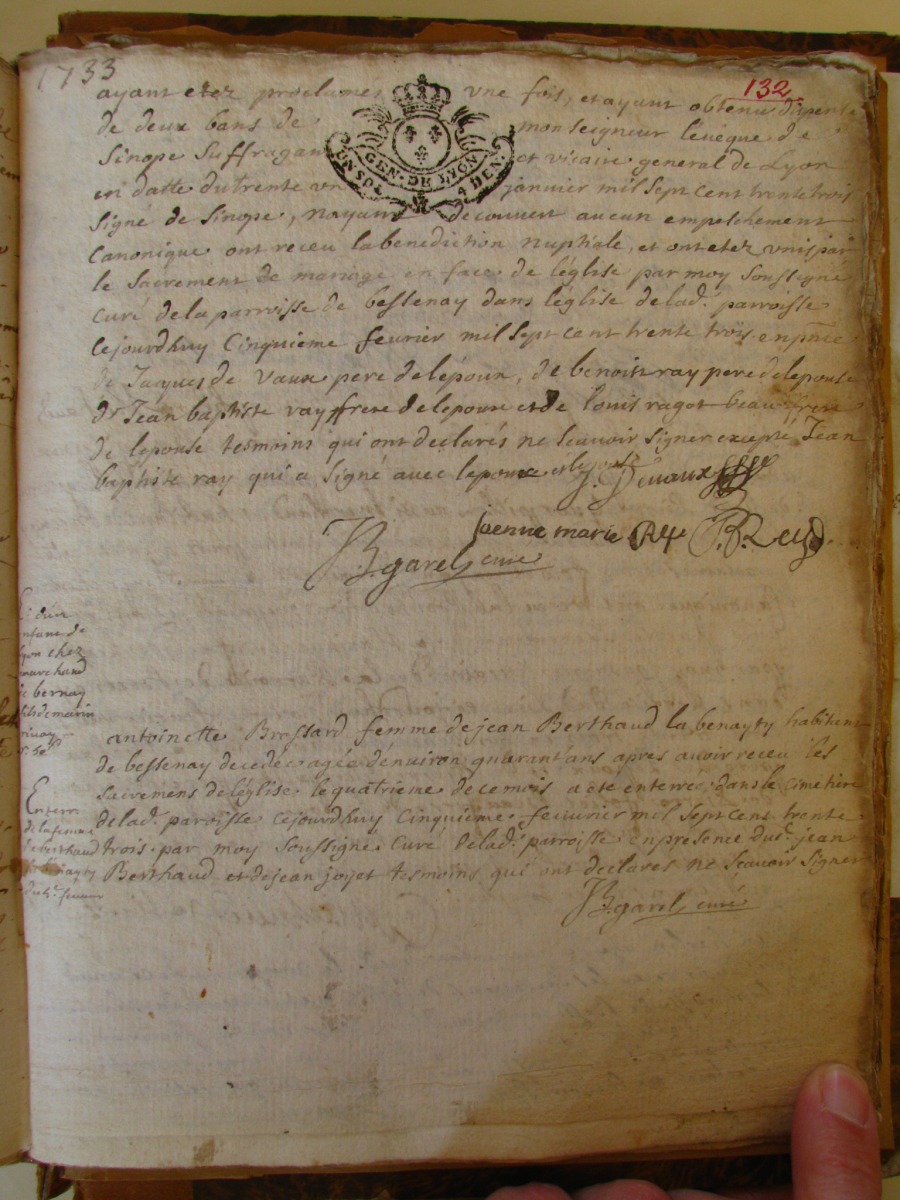 1733
132
ayant etez proclames une fois, et ayant obtenu dispense
de deux bans de monseigneur l'eveque de
Sinope Suffragan et vicaire general de Lyon
GEN. DE LYON
UN SOL 4 DEN.
en datte du trente un janvier mil sept cent trente trois
signé de Sinope, nayant decouvert aucun empeschement
Canonique ont receu la benediction nuptiale, et ont etez unis par
le sacrement de mariage en face de l'église par moy soussigne
curé de la parroisse de bessenay dans l'église de lad. parroisse
cejourdhuy Cinquieme fevrier mil sept cent trente trois en pnce
de Jaques de Vaux pere de lépoux, de benoist ray pere de lepouse
de Jéan baptiste ray frere de lepouse et de louis ragot beau frere
de lepouse tesmoins qui ont declarés ne scavoir signer excepte Jean
baptiste ray qui a signé avec lepoux et lepouse J. Devaux
joenne marie Rey J. B. Rey
JB. garel curé
enfant de
lyon chez
marchand
de bernay
fils de marin
antoinette Brossard femme de jean Berthaud la benayty habitent
de bessenay decedee agée dénuiron quarant'ans apres avoir receu les
sacremens de léglise le quatrieme de ce mois a ete enterrée dans le cimetiere
de lad. parroisse cejourdhuy Cinquieme feuvrier mil sept cent trente
trois par moy soussigne curé de lad. parroisse en presence dud. jean
Berthaud et de jean joyet tesmoins qui ont declares ne scavoir signer
JB. garel curé
Enterr.
de la femme
de berthaud